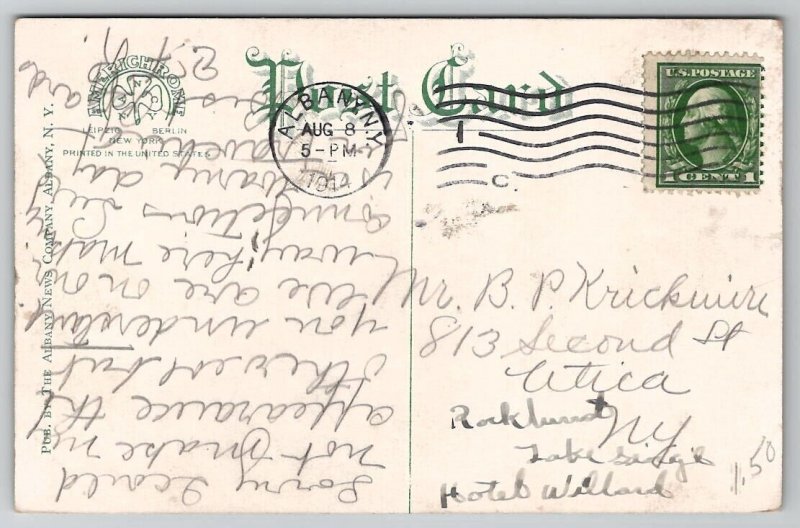 Post Card
AMERICHROME
LEIPZIG BERLIN
NEW YORK
PRINTED IN THE UNITED STATES
PUB. BY THE ALBANY NEWS COMPANY, ALBANY, N. Y.
ALBANY N.Y.
AUG 8
5-PM
1914
U.S. POSTAGE
1 CENT 1
Sorry I could
not make my
appearance the
other eve but
you understand
we are on our
way here making
connections
Albany day
Mr. B. P. Krickmire
813 Second St
Utica
NY
Rockhurst
Lake George
Hotel Willard
1.50